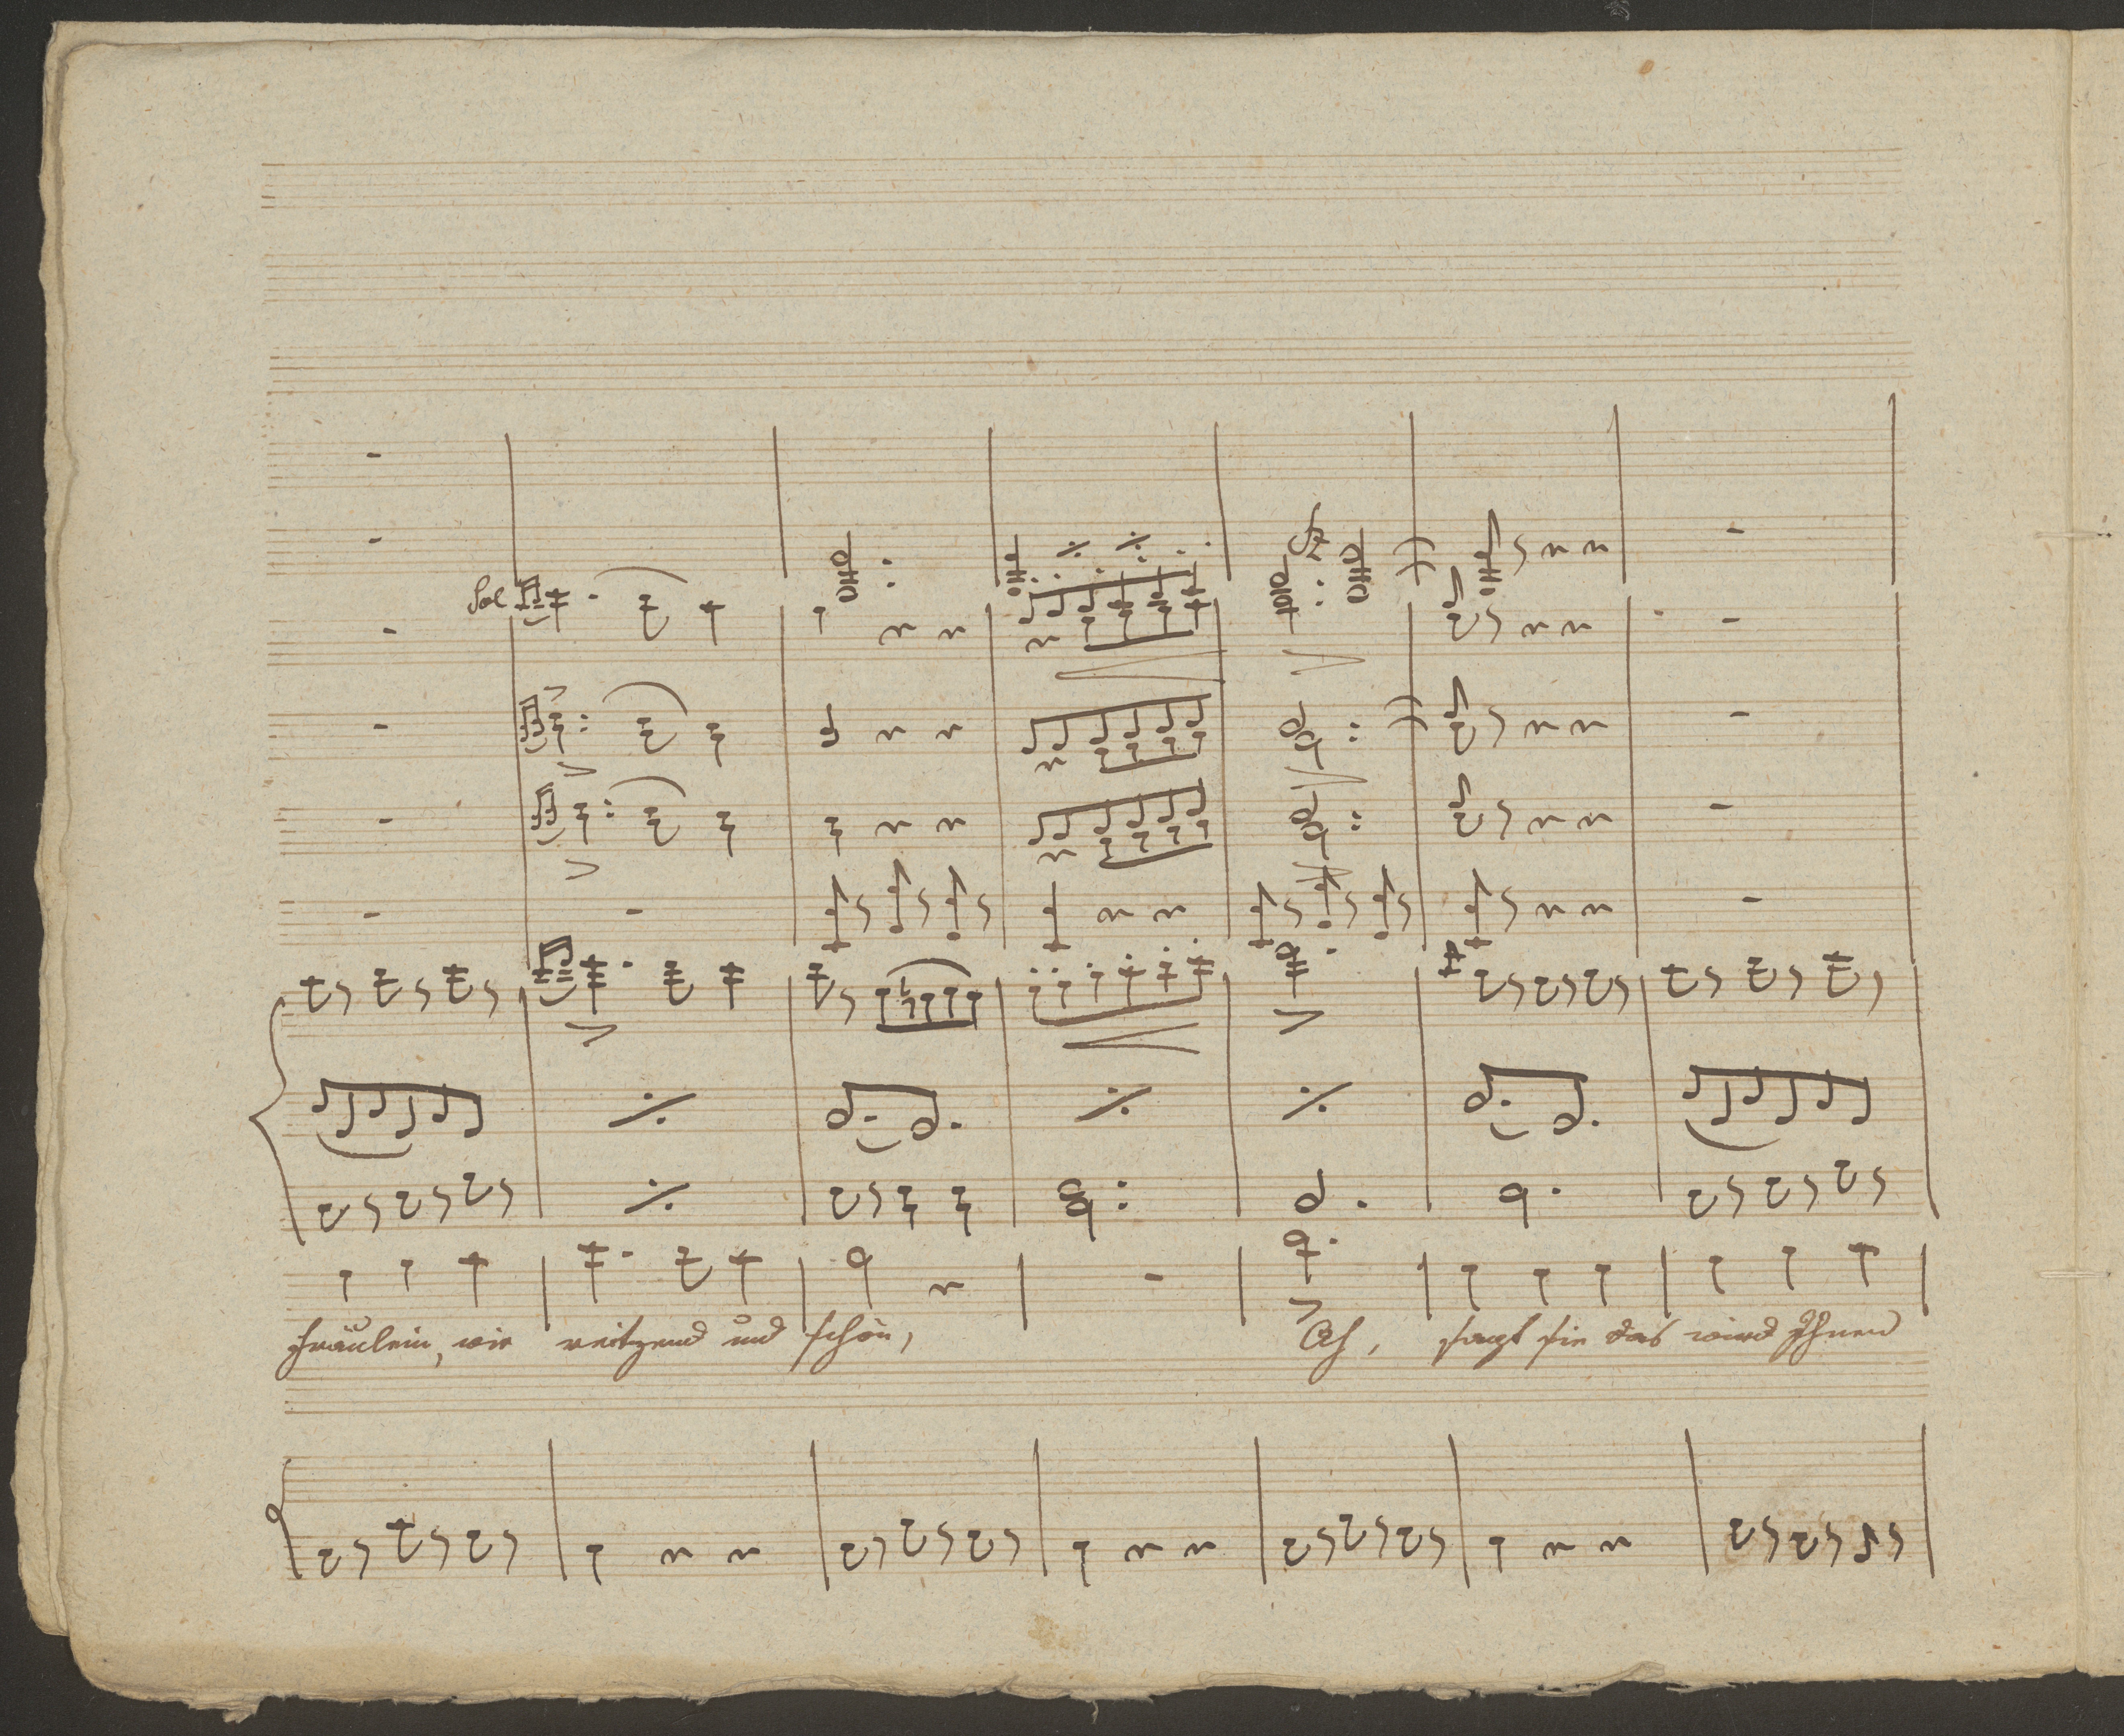 Sol
fräulein, wie reitzend und schön, Ach, sagt sie das wird Ihnen